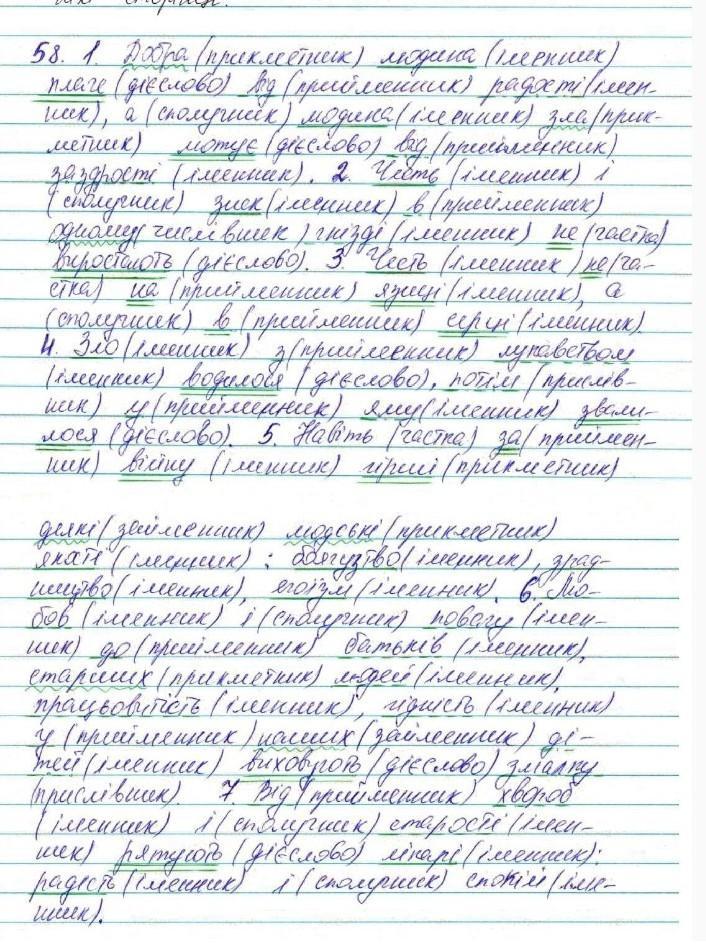 58. 1. Добра (прикметник) людина (іменник)
плаче (дієслово) від (прийменник) радості (імен-
ник), а (сполучник) людина (іменник) зла (прик-
метник) лютує (дієслово) від (прийменник)
заздрості (іменник). 2. Честь (іменник) і
(сполучник) зиск (іменник) в (прийменник)
одному (числівник) гнізді (іменник) не (частка)
виростають (дієслово). 3. Честь (іменник) не (ча-
стка) на (прийменник) язиці (іменник), а
(сполучник) в (прийменник) серці (іменник).
4. Зло (іменник) з (прийменник) лукавством
(іменник) водилося (дієслово), потім (прислів-
ник) у (прийменник) яму (іменник) звали-
лося (дієслово). 5. Навіть (частка) за (приймен-
ник) війну (іменник) гірші (прикметник)
деякі (займенник) людські (прикметник)
якості (іменник): боягузтво (іменник), зрад-
ництво (іменник), егоїзм (іменник). 6. Лю-
бов (іменник) і (сполучник) повагу (імен-
ник) до (прийменник) батьків (іменник),
старших (прикметник) людей (іменник),
працьовитість (іменник), гідність (іменник)
у (прийменник) наших (займенник) ді-
тей (іменник) виховують (дієслово) змалку
(прислівник). 7. Від (прийменник) хвороб
(іменник) і (сполучник) старості (імен-
ник) рятують (дієслово) лікарі (іменник):
радість (іменник) і (сполучник) спокій (іме-
нник).